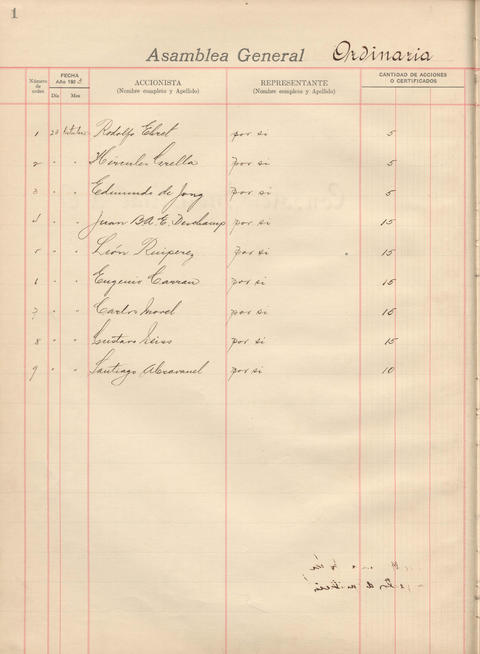 1
Asamblea General Ordinaria
Número de orden
FECHA
Año 192
Día Mes
ACCIONISTA
(Nombre completo y Apellido)
REPRESENTANTE
(Nombre completo y Apellido)
CANTIDAD DE ACCIONES
O CERTIFICADOS
1 20 Octubre Rodolfo Ebret por si 5
2 " " Hércules por si 5
3 " " Edmundo de Jong por si 5
4 " " Juan B.A.E. Deschamp por si 15
5 " " León Ruiperez por si 15
6 " " Eugenio Carran por si 15
7 " " Carlos Morel por si 15
8 " " Gustavo Weiss por si 15
9 " " Santiago Abravanel por si 10